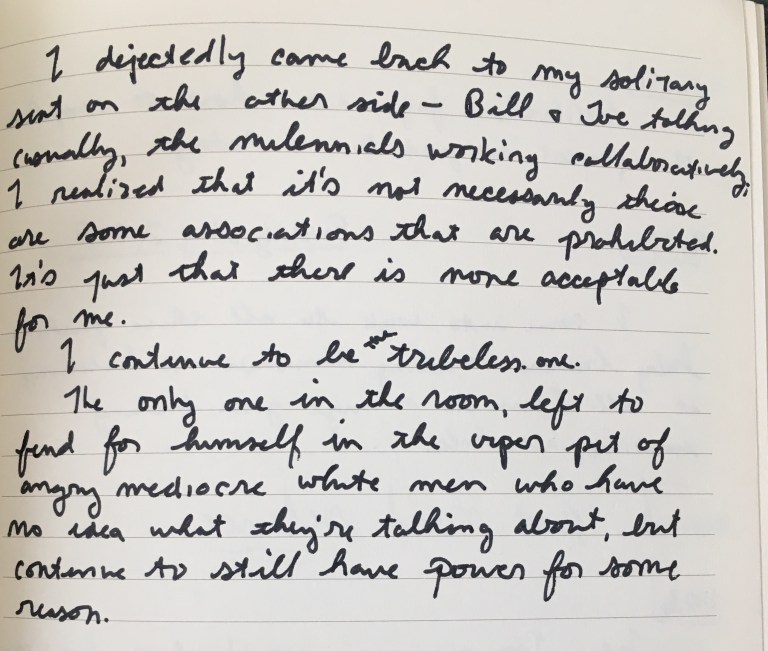 I dejectedly came back to my solitary
seat on the other side – Bill & Joe talking
casually, the milennials working collaboratively,
I realized that it's not necessarily there
are some associations that are prohibited.
It's just that there is none acceptable
for me.
I continue to be the tribeless one.
The only one in the room, left to
fend for himself in the viper pit of
angry mediocre white men who have
no idea what they're talking about, but
continue to still have power for some
reason.